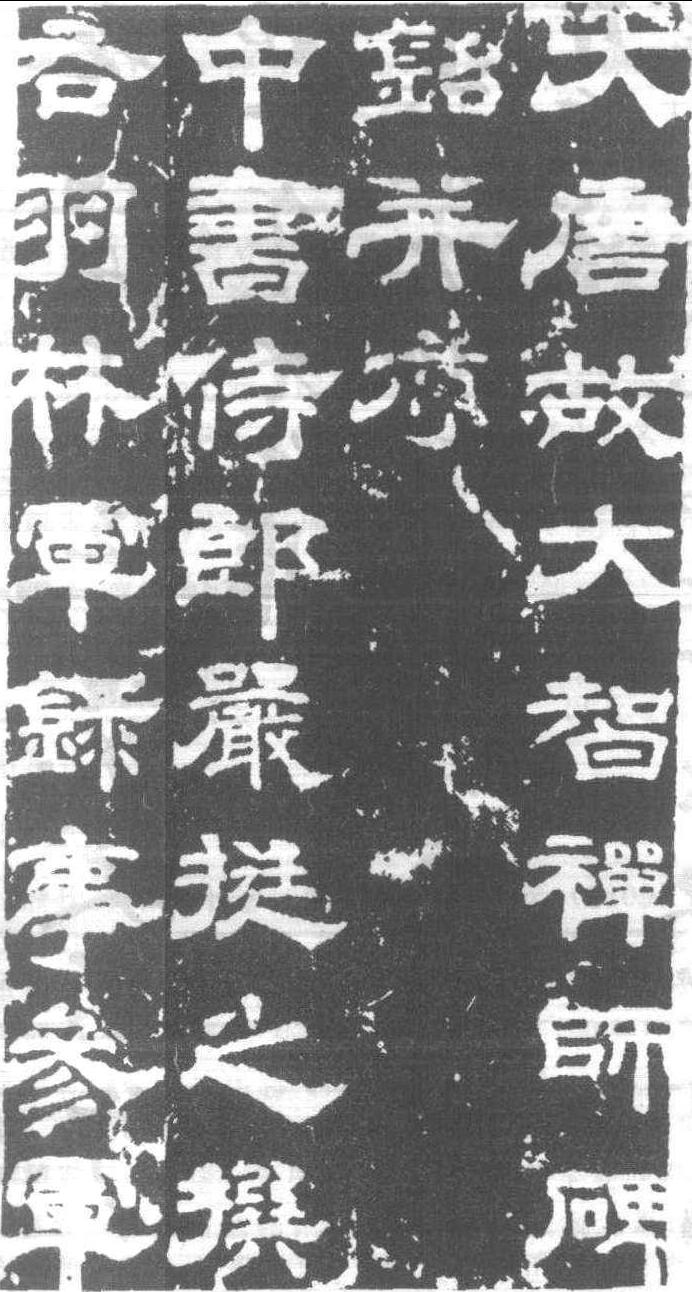 大唐故大智禪師碑
銘并序
中書侍郎嚴挺之撰
右羽林軍錄事參軍